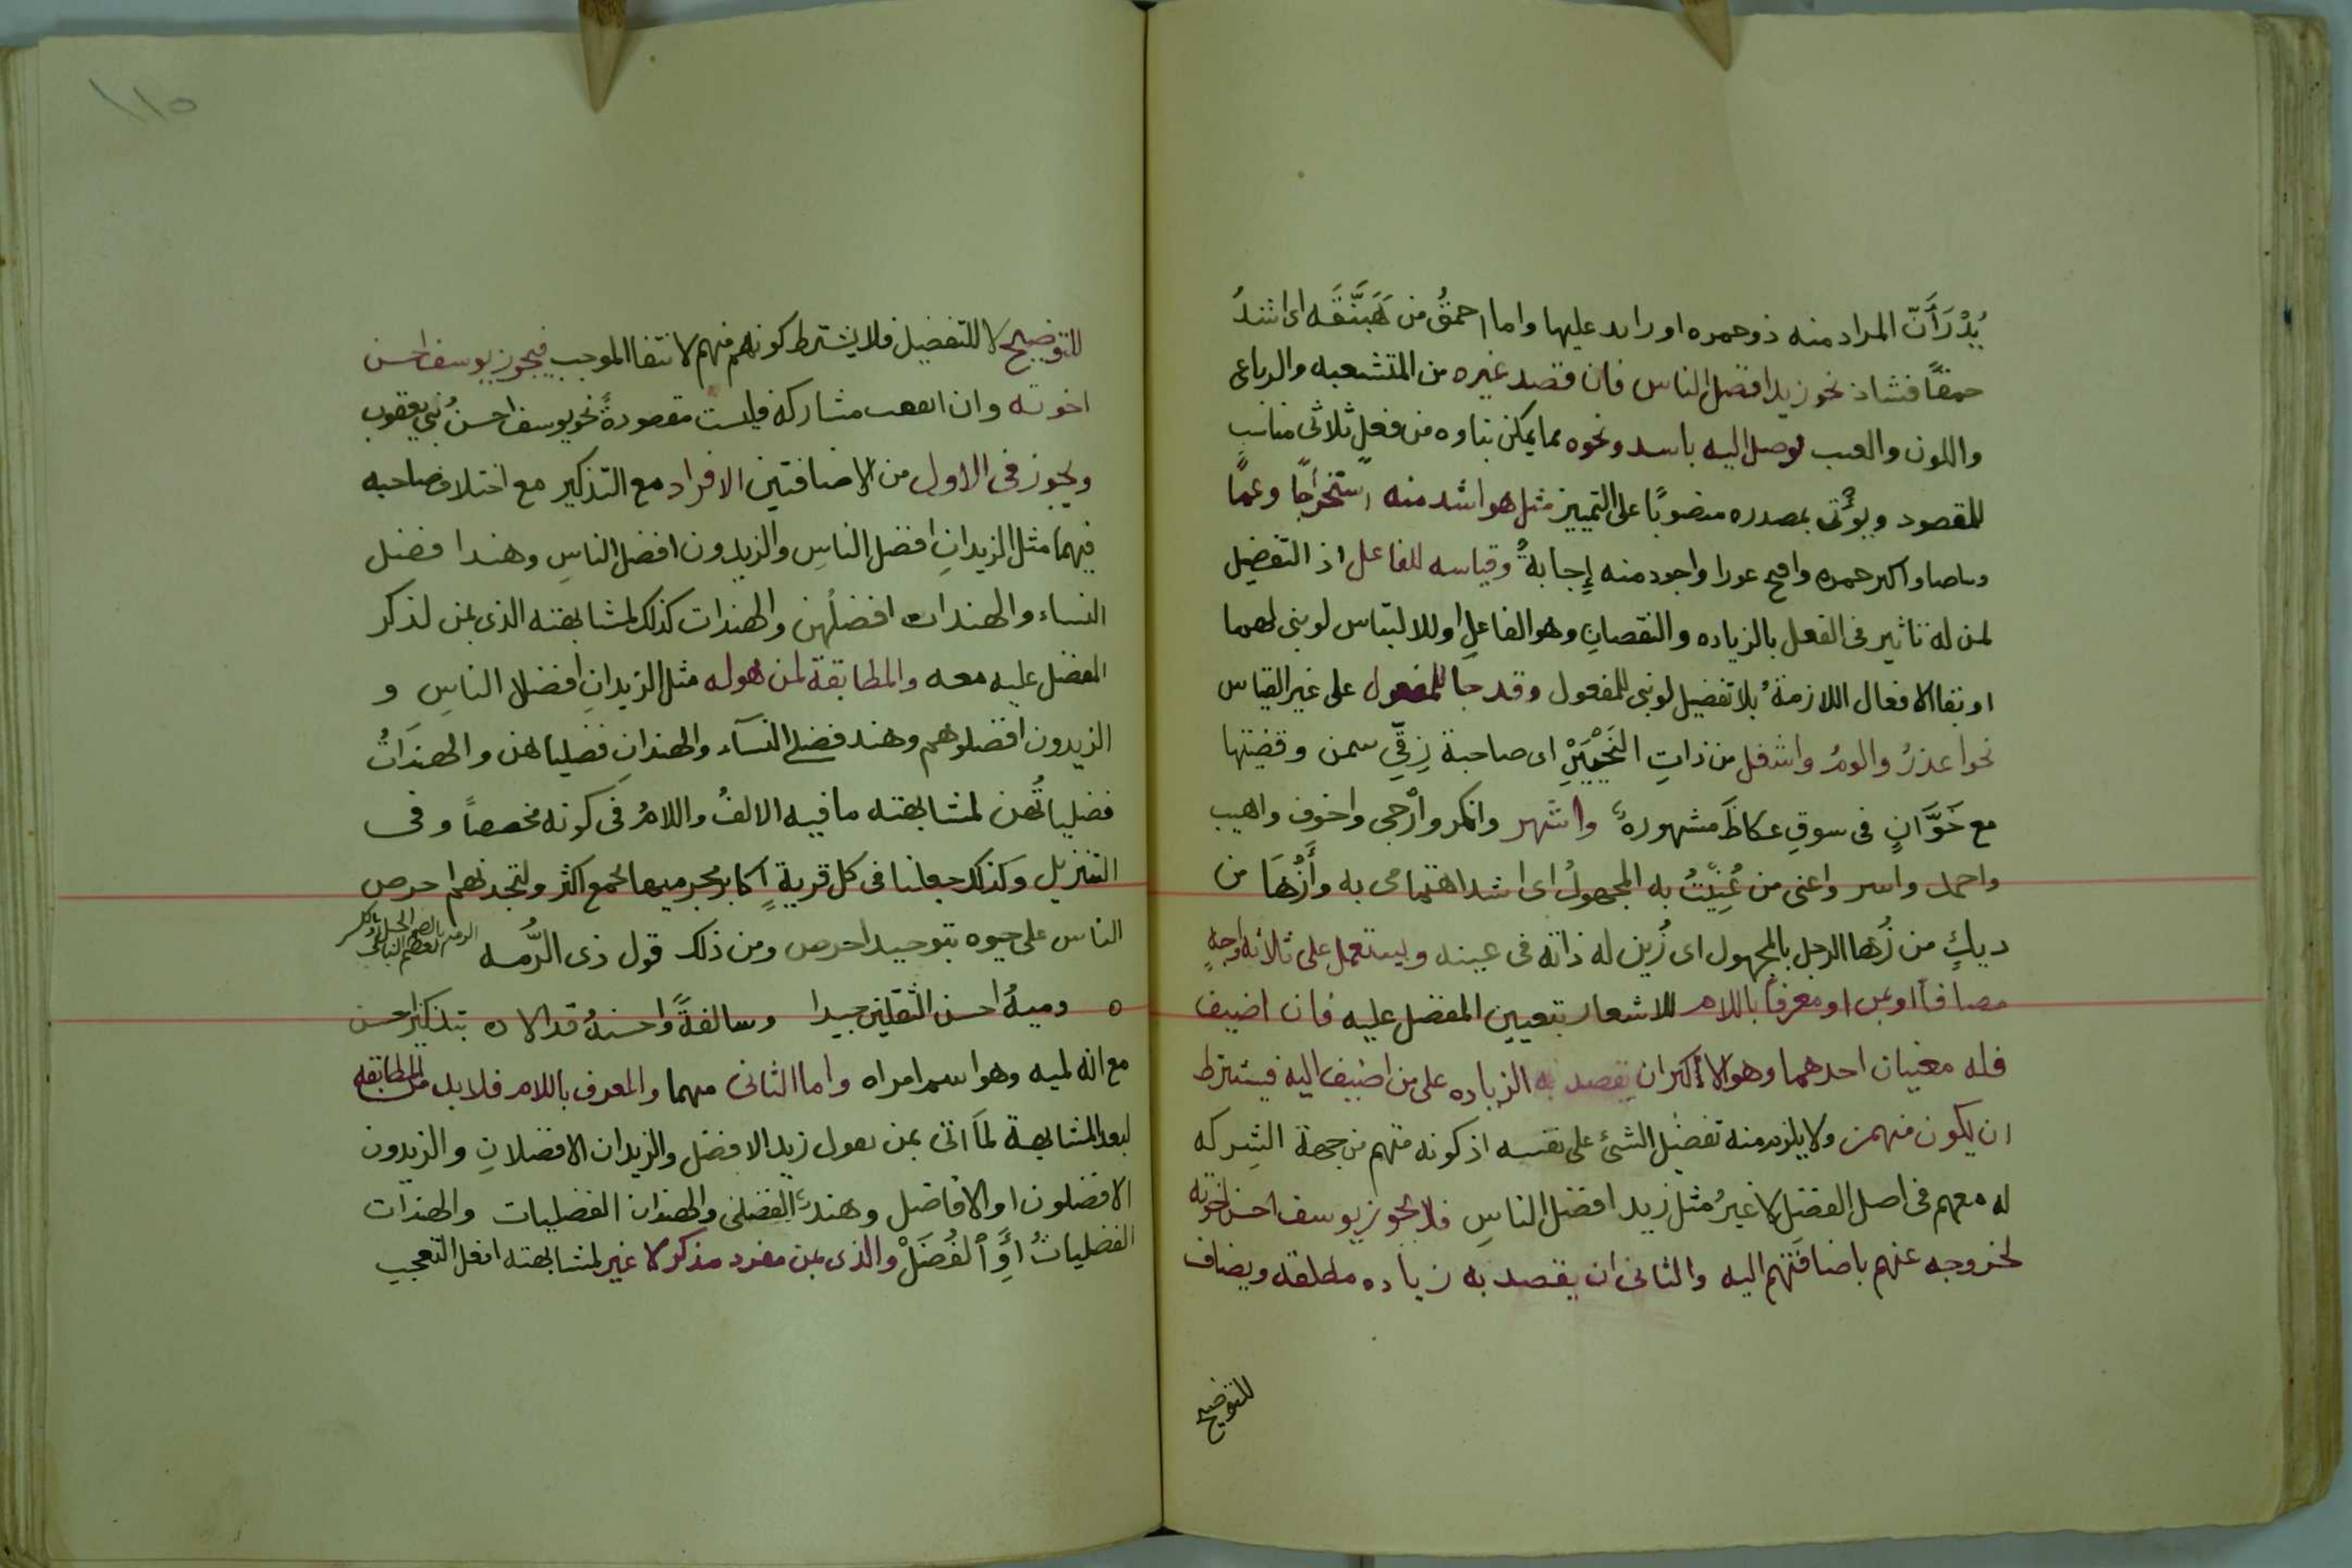 يُدْرَ أَنّ المراد منه ذو حمره او زايد عليها واما احمقُ من هَبَنَّقَه اى اشدُ
حمقًا فشاذ نحو زيد افضل الناس فان قصد غيره من المتشعبه والرباعى
واللون والعيب توصل اليه باشد ونحوه مما يمكن بناوه من فعلٍ ثلاثى مناسب
للمقصود ويؤتى بمصدره منصوبًا على التمييز مثل هو اشد منه استخراجًا وعمًا
وبياضا واكبر حمره واقبح عورا واجود منه إِجابةً وقياسه للفاعل اذ التفضيل
لمن له تاثير فى الفعل بالزياده والنقصانِ وهو الفاعلِ او للالتباس لو بنى لهما
او بقا الافعال اللازمة بلا تفضيل لو بنى للمفعول وقد جا للمفعول على غير القياس
نحو اعذرُ والومُ واشغل من ذاتِ النِحْيَيْنِ اى صاحبة زِقّىِ سمن وقضيتها
مع خَوَّاتٍ فى سوقِ عكاظَ مشهورةٌ واشهر وانكر وارْجى واخوف واهيب
واحمد واسر واعنى من عُنِيْتُ به المجهولُ اى اشد اهتمامى به وأَزْهَا من
ديكٍ من زُها الرجل بالمجهول اى زُين له ذاته فى عينه ويستعمل على ثلاثه اوجهٍ
مضافًا او بمن او معرفًا باللام للاشعار بتعيين المفضل عليه فان اضيف
فله معنيان احدهما وهو الاكثر ان يقصد به الزياده على من اضيف اليه فيشترط
ان يكون منهم ولا يلزم منه تفضيل الشئ على نفسه اذ كونه منهم من جهة الشِركه
له معهم فى اصل الفضلِ لا غيرُ مثل زيد افضل الناسِ فلا يجوز يوسف احسن اخوته
لخروجه عنهم باضافتهم اليه والثانى ان يقصد به زياده مطلقه ويضاف
للتوضيح
١١٥
للتوضيح لا للتفضيل فلا يشترط كونه منهم لانتفا الموجب فيجوز يوسف احسن
اخوته وان اتفقت مشاركة فليست مقصودةً نحو يوسف احسنُ بنى يعقوب
ويجوز فى الاول من الاضافتين الافراد مع التذكير مع اختلاف صاحبه
فيهما مثل الزيدانِ افضل الناسِ والزيدون افضل الناسِ وهند افضل
النساء والهندات افضلُهن والهندات كذلك لمشابهته الذى بمن لذكر
المفضل عليه معه والمطابقة لمن هو له مثل الزيدانِ افضلا الناسِ و
الزيدون افضلوهم وهند فضلى النسآء والهندانِ فضلياهن والهنداتُ
فضلياتُهن لمشابهته ما فيه الالفُ واللامُ فى كونه مخصصًا وفى
التنزيل وكذلك جعلنا فى كل قريةٍ اكابر مجرميها لجمع اكثر ولتجدنهم احرص
الناس على حيوه بتوحيد احرص ومن ذلك قول ذى الرُّمه
وميةُ احسن الثقلين جيدا وسالفةً واحسنهُ قذالا ه بتذكير احسن
مع انه لميه وهو اسم امراه واما الثانى منهما والمعرف باللام فلا بد من المطابقه
لبعد المشابهة لمَا اتى بمن تقول زيد الافضل والزيدان الافضلانِ والزيدون
الافضلون او الافاضل وهندٌ الفضلى والهندان الفضليات والهندات
الفضلياتُ أَوِ ٱلفُضَلْ والذى بمن مفرد مذكر لا غير لمشابهته افعل التعجب